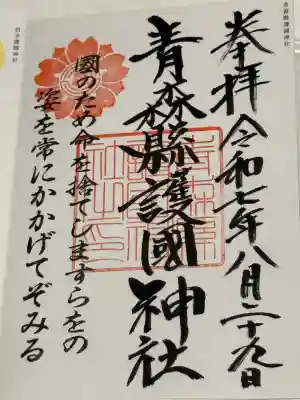 奉拝 令和七年八月二十九日
青森縣護國神社
國のため命を捨てしますらをの
姿を常にかかげてぞみる
青森縣護國神社